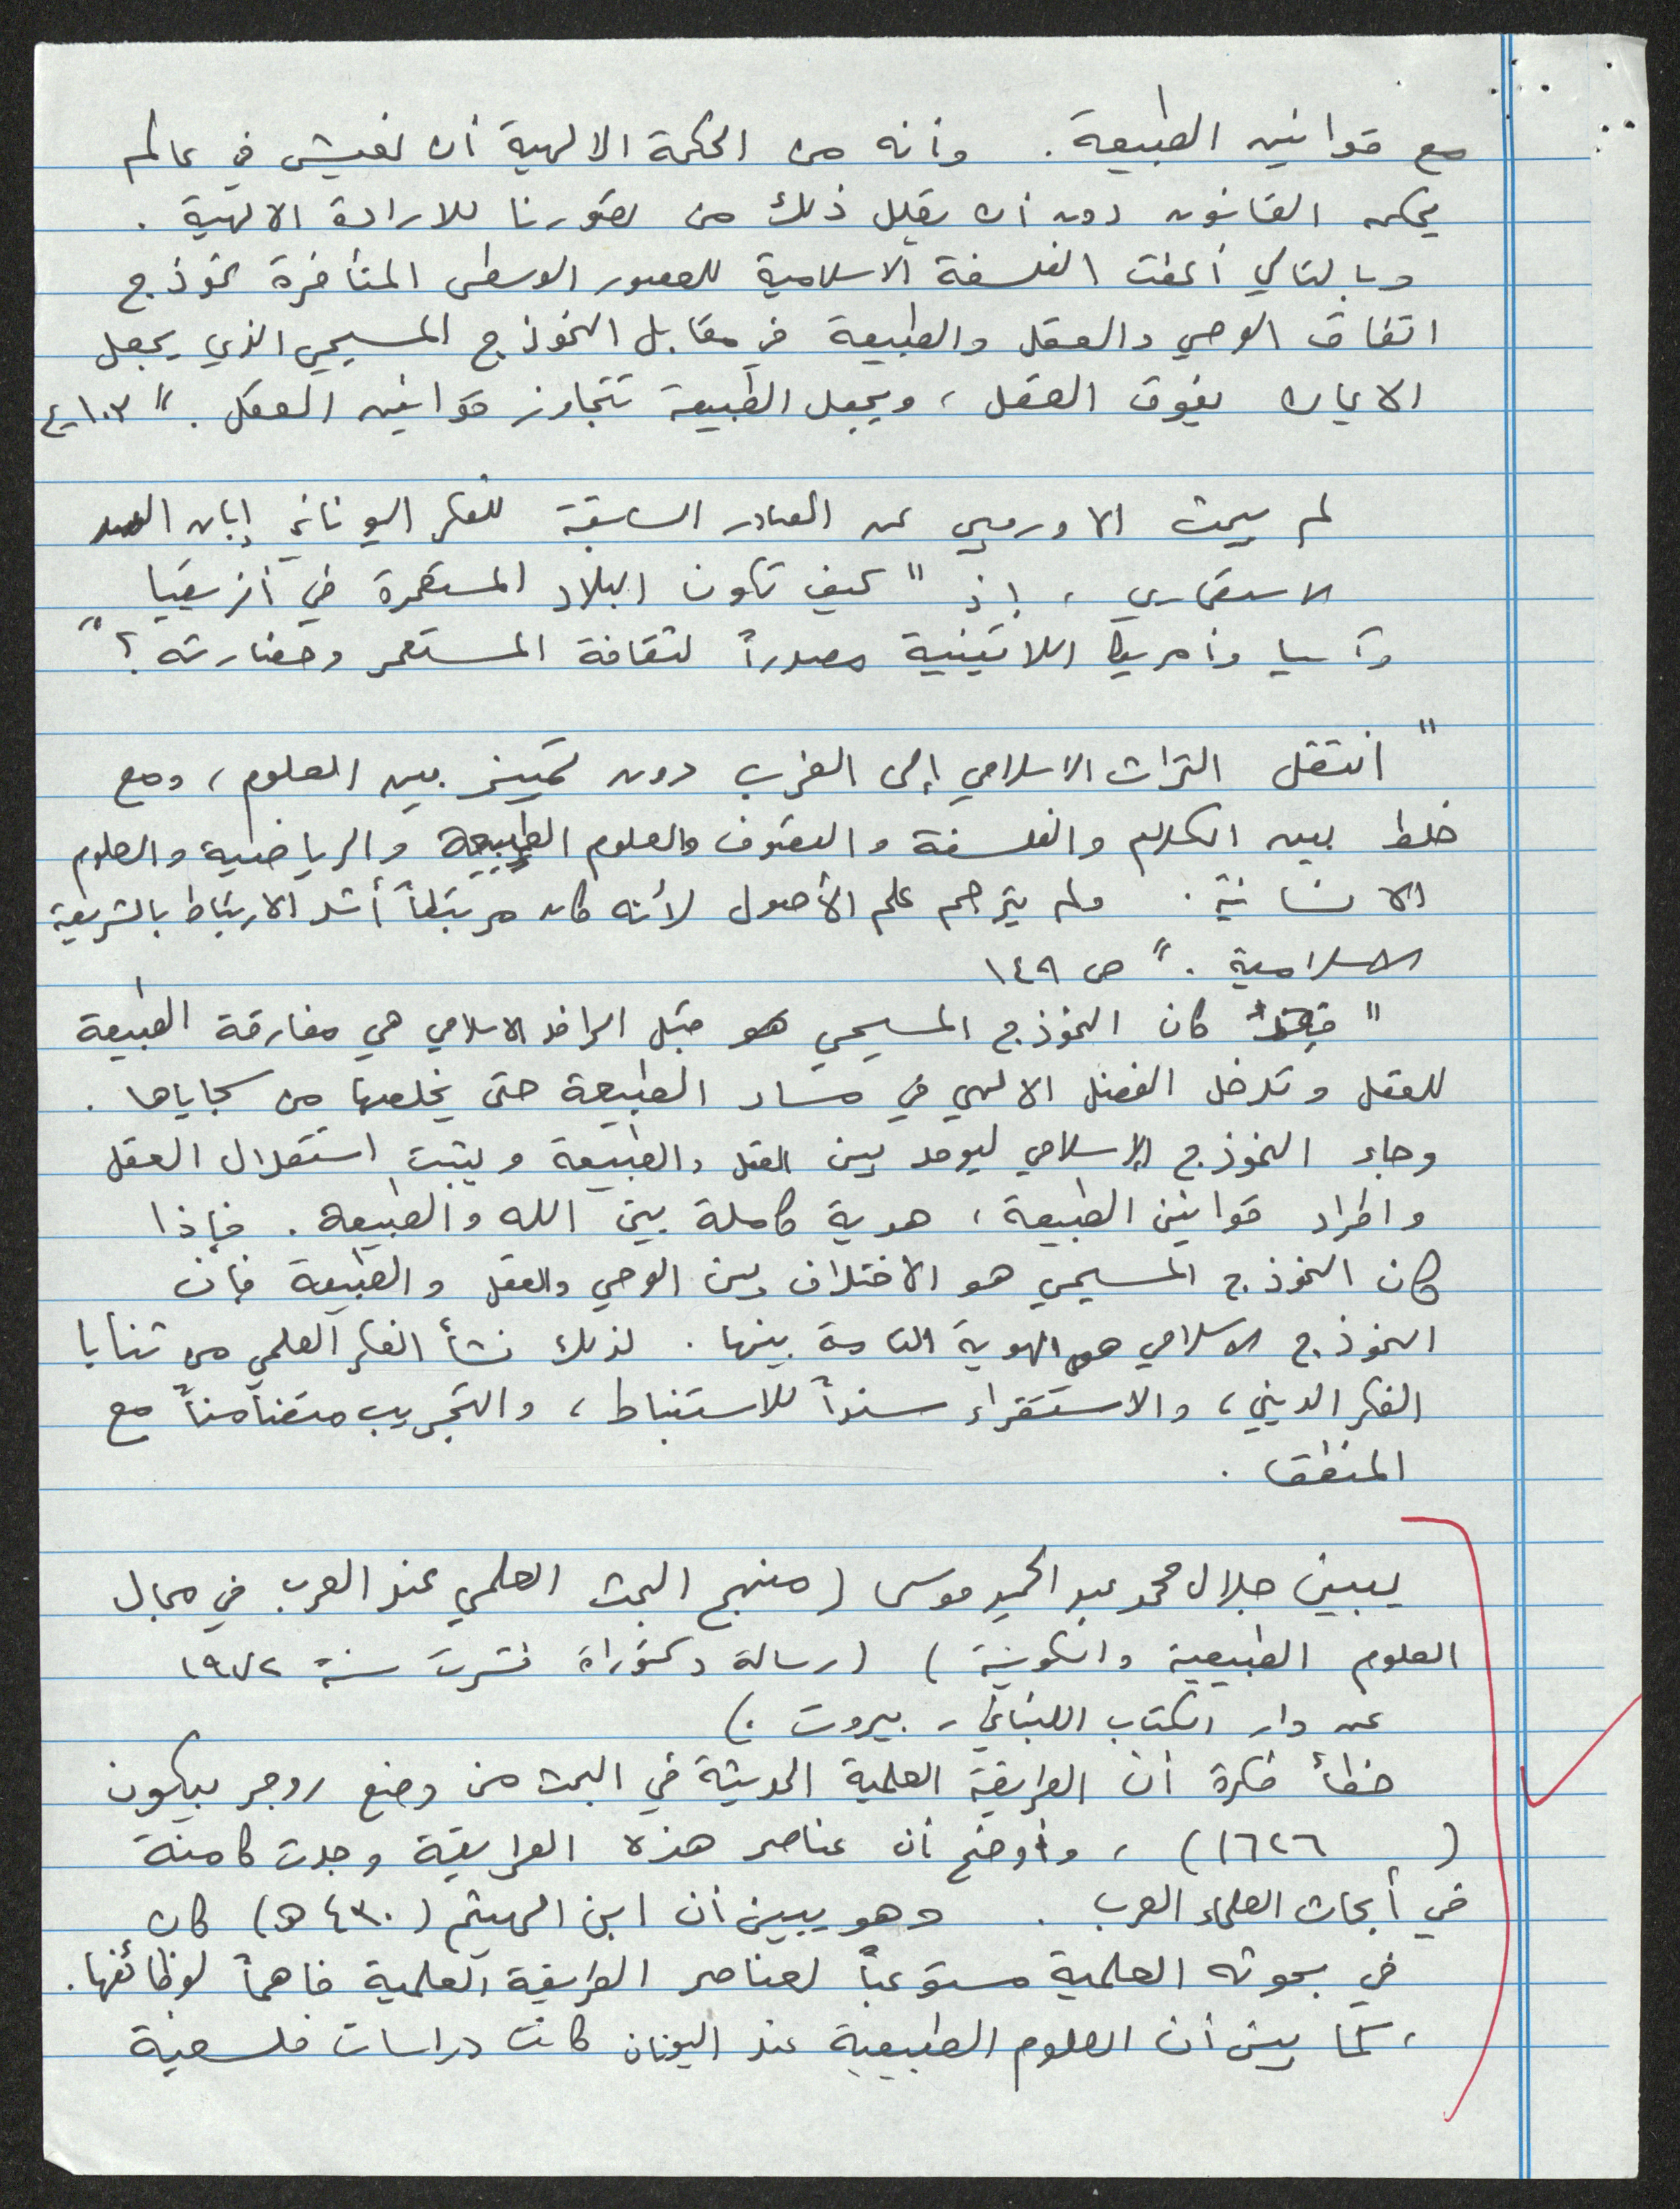 مع قوانين الطبيعة . وأنه من الحكمة الالهية أن نعيش في عالم
يحكمه القانون دون أن يقلل ذلك من تصورنا للارادة الالهية .
وبالتالي أعطت الفلسفة الاسلامية للعصور الوسطى المتأخرة نموذج
اتفاق الوحي والعقل والطبيعة في مقابل النموذج المسيحي الذي يجعل
الايمان يفوق العقل ، ويجعل الطبيعة تتجاوز قوانين العقل . "
لم يبحث الاوربي عن المصادر السابقة للفكر اليوناني إبان
الاستعماري ، إذ " كيف تكون البلاد المستعمرة في أفريقيا
وآسيا وأمريكا اللاتينية مصدراً لثقافة المستعمر وحضارته ؟ "
" انتقل التراث الاسلامي إلى الغرب دون تمييز بين العلوم ، ومع
خلط بين الكلام والفلسفة والتصوف والعلوم الطبيعية والرياضية والعلوم
الانسانية . ولم يترجم علم الأصول لأنه كان مرتبطاً أشد الارتباط بالشريعة
الاسلامية . " ص ١٤٩
" كان النموذج المسيحي هو قبل الرافد الاسلامي هي مفارقة الطبيعة
للعقل وتدخل الفضل الالهي في مسار الطبيعة حتى يخلصها من سجاياها .
وجاء النموذج الإسلامي ليوحد بين العقل والطبيعة ويثبت استقلال العقل
واطراد قوانين الطبيعة ، هوية كاملة بين الله والطبيعة . فإذا
كان النموذج المسيحي هو الاختلاف بين الوحي والعقل والطبيعة فإن
النموذج الاسلامي هو الهوية التامة بينها . لذلك نشأ الفكر العلمي من ثنايا
الفكر الديني ، والاستقراء سنداً للاستنباط ، والتجريب متضامناً مع
المنطق .
يبين جلال محمد عبد الحميد موسى ( منهج البحث العلمي عند العرب في مجال
العلوم الطبيعية والكونية ) ( رسالة دكتوراة نشرت سنة ١٩٧٢
عن دار الكتاب اللبناني ، بيروت . )
خطأ فكرة أن الطريقة العلمية الحديثة في البحث من وضع روجر بيكون
( ١٦٢٦ ) ، وأوضح أن عناصر هذه الطريقة وجدت كامنة
في أبحاث العلماء العرب . وهو يبين أن ابن الهيثم ( ٤٣٠ هـ ) كان
في بحوثه العلمية مستوعباً لعناصر الطريقة العلمية فاهماً لوظائفها .
، كما يبين أن العلوم الطبيعية عند اليونان كانت دراسات فلسفية